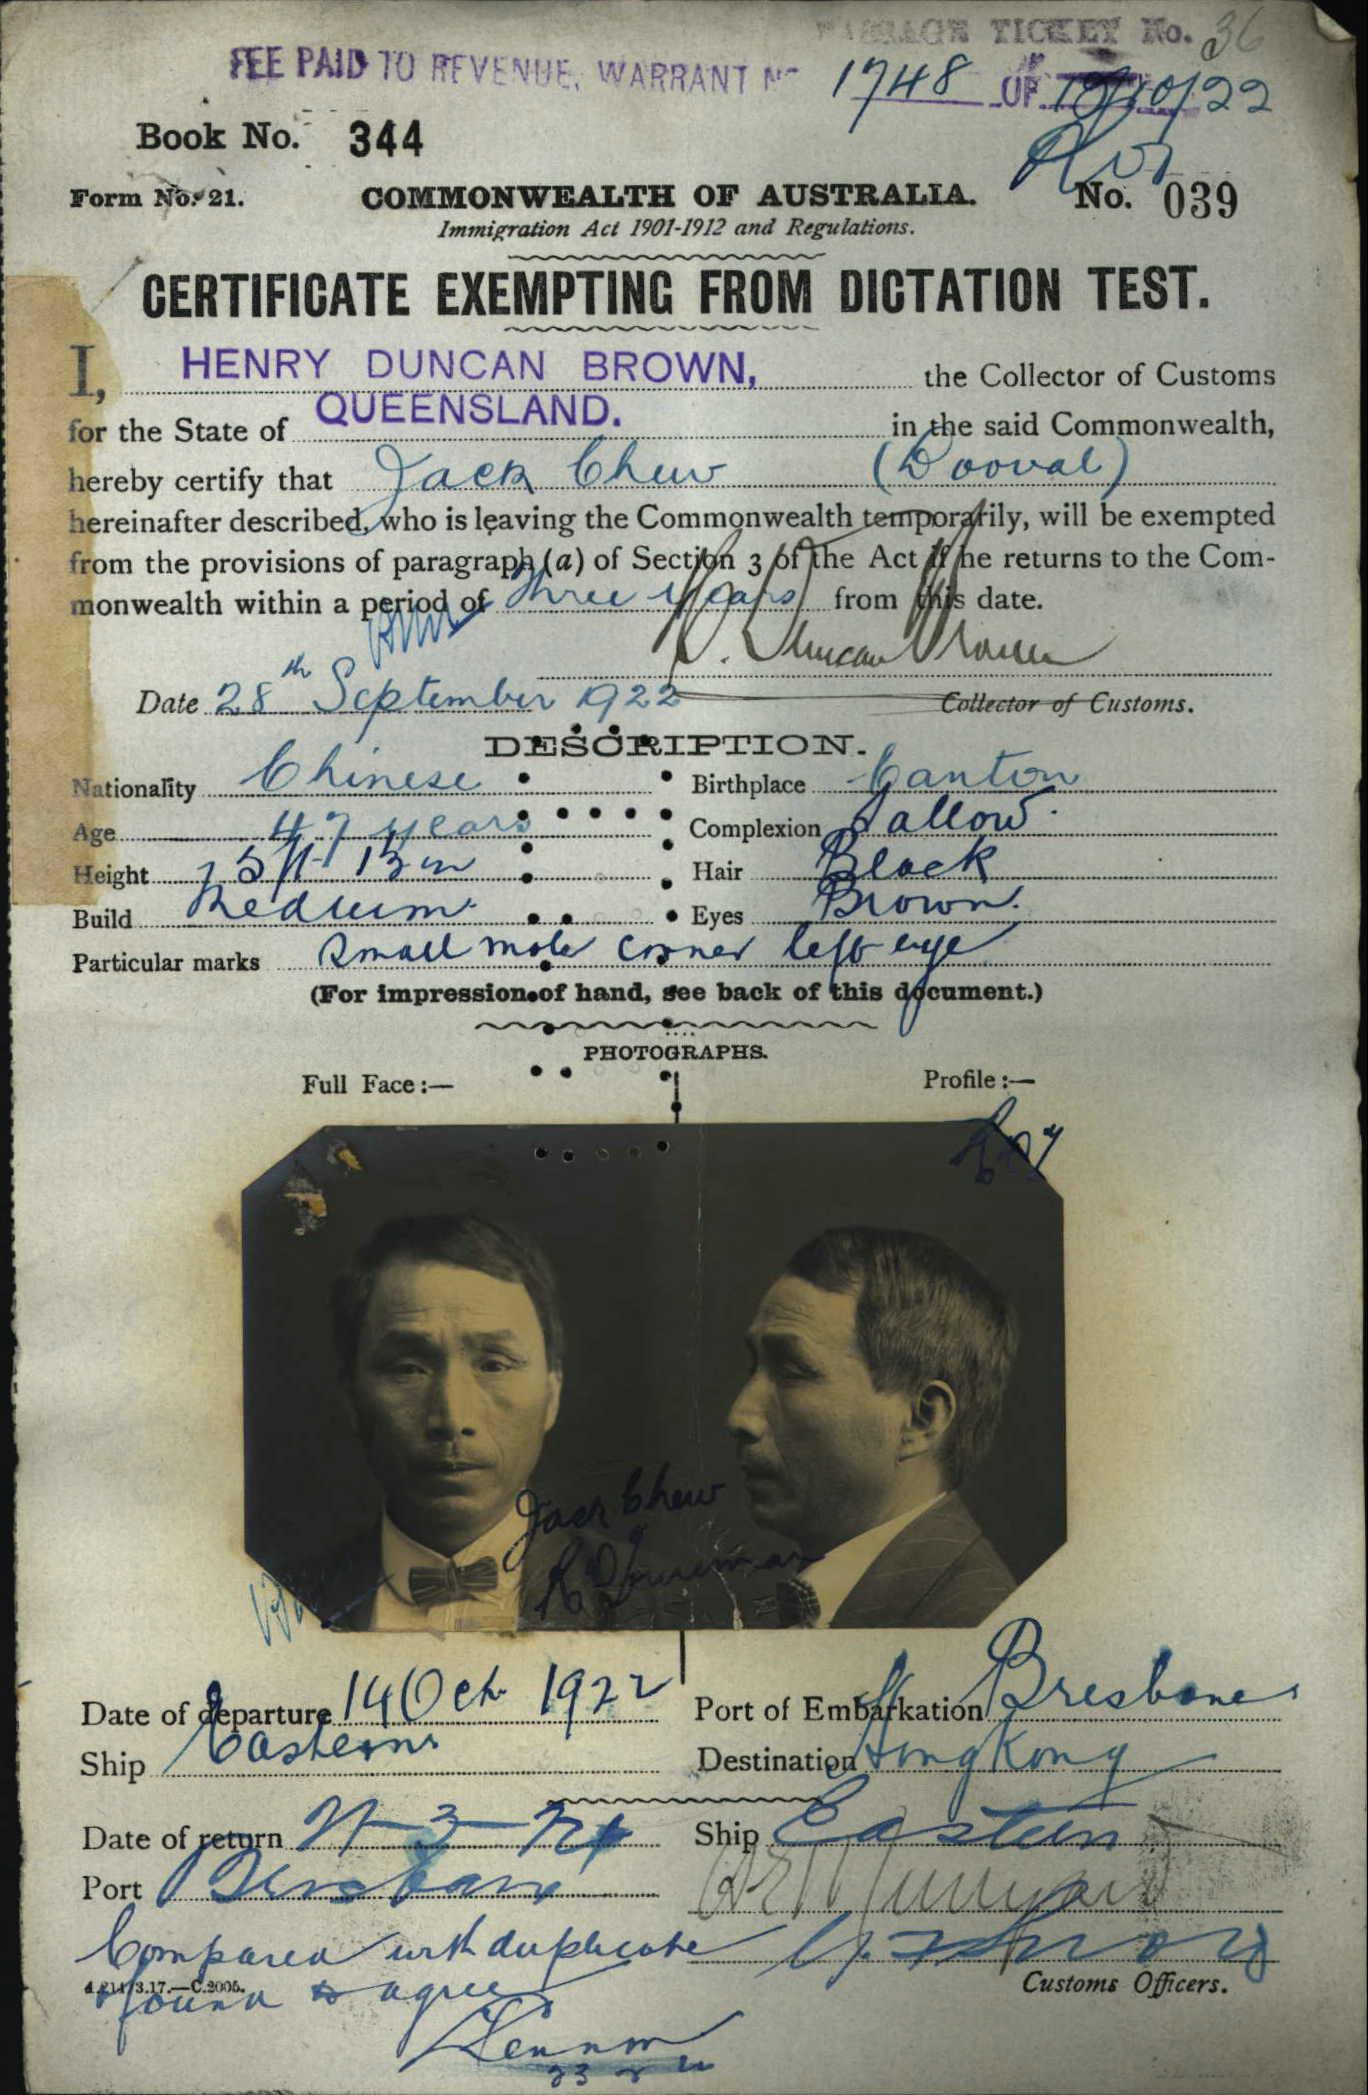 PASSAGE TICKET No. 36
FEE PAID TO REVENUE, WARRANT No 1748 OF /10/22
Book No. 344
Form No. 21.
COMMONWEALTH OF AUSTRALIA.
No. 039
Immigration Act 1901-1912 and Regulations.
CERTIFICATE EXEMPTING FROM DICTATION TEST.
I, HENRY DUNCAN BROWN, the Collector of Customs
for the State of QUEENSLAND. in the said Commonwealth,
hereby certify that Jack Chew (Dooval)
hereinafter described, who is leaving the Commonwealth temporarily, will be exempted
from the provisions of paragraph (a) of Section 3 of the Act if he returns to the Com-
monwealth within a period of Three years from this date.
H. Duncan Brown
Date 28th September 1922 Collector of Customs.
DESCRIPTION.
Nationality Chinese Birthplace Canton
Age 47 years Complexion Sallow.
Height 5 ft Hair Black
Build Medium. Eyes Brown.
Particular marks Small mole corner left eye
(For impression of hand, see back of this document.)
PHOTOGRAPHS.
Full Face :— Profile :—
Jack Chew
Date of departure 14 Oct 1922 Port of Embarkation Brisbane
Ship Eastern Destination Hong Kong
Date of return Ship Eastern
Port Brisbane
Compared with duplicate
found to agree
Customs Officers.